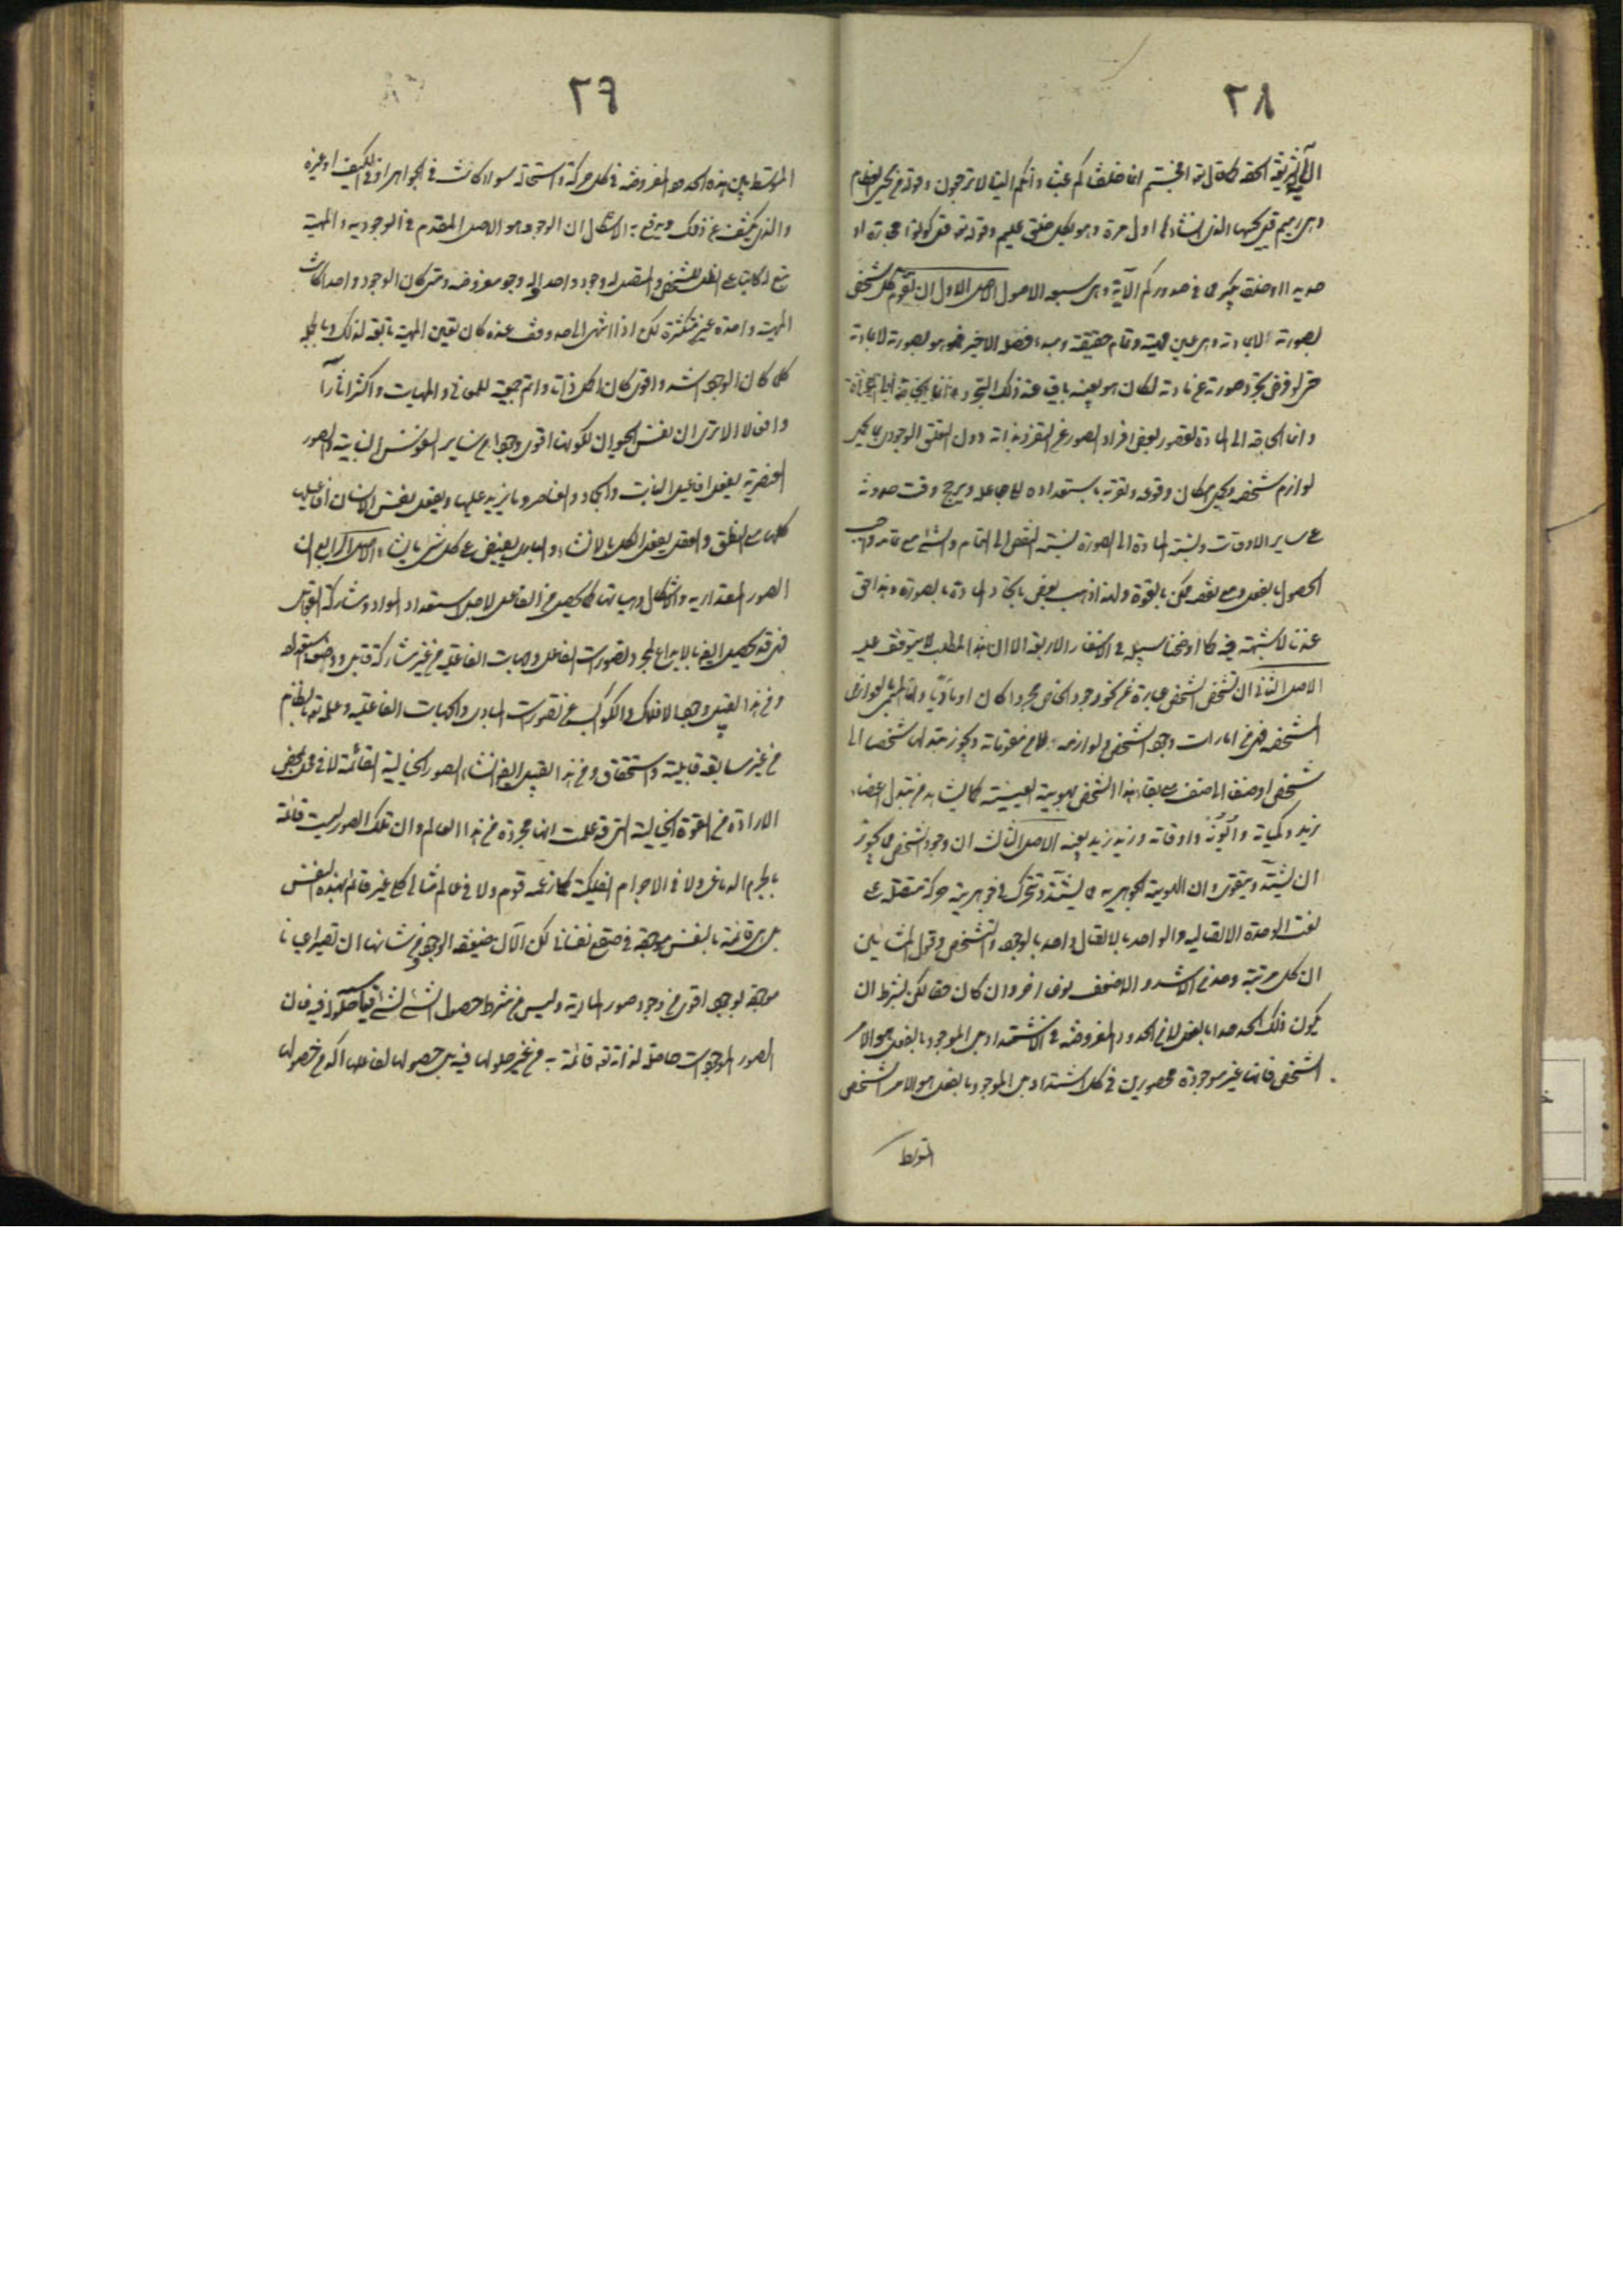 ٢٨
وهى رميم قل يحييها الذى انشأها اول مرة وهو بكل خلق عليم وقوله تع قل كونوا حجارة او
حديدا او خلقا مما يكبر فى صدوركم الآية وهى سبعة الاصول الاصل الاول ان تقوم كل شخص
بصورته لا بمادته وهى عين مهيته وتمام حقيقته ومبدء فصله الاخير فهو هو بصورته لا بمادته
حتى لو فرض تجرد صورته عن مادته لكان هو بعينه باقيا عند ذلك التجرد
وانما الحاجة الى المادة لقصور بعض افراد الصور عن التفرد بذاته دون التعلق الوجودى بما يحمل
لوازم شخصه ويحمل امكان وقوعه ويقربه باستعداده الى جاعله ويرجح وقت حدوثه
على ساير الاوقات ونسبة المادة الى الصورة نسبة النقص الى التمام والشئ مع تمامه واجب
الحصول بالفعل ومع نقصه ممكن بالقوة ولهذا ذهب بعض باتحاد المادة بالصورة وهذا حق
عندنا لا شبهة فيه كما اوضحنا سبيله فى الاسفار الاربعة الا ان هذا المطلب لا يتوقف عليه
الاصل الثانى ان تشخص الشخص عبارة عن نحو وجود الخاص مجردا كان او ماديا واما المسمى بعوارض
المشخصة فهى من امارات وجود الشخص ولوازمه لا من مقوماته ويجوز تبدلها شخصا الى
شخص او صنفا الى صنف مع بقاء هذا الشخص بهويته العينية كما يشاهد من تبدل اعضاء
زيد وكمياته واوقاته وزيد زيد بعينه الاصل الثالث ان وجود الشخص مما يجوز
ان يشتد ويتقوى وان الهوية الجوهرية مما يشتد وتتحرك فى جوهريته حركة متصلة على
نعت الوحدة الاتصالية والواحد بالاتصال واحد بالوجود والتشخص وقول المشائين
ان كل مرتبة وحد من الاشد والاضعف نوع اخر وان كان حقا لكن بشرط ان
يكون ذلك الحد حدا بالفعل لا من الحدود المفروضة فى الاشتداد بل الموجود بالفعل هو الامر
الشخص فانها غير موجودة محصورين فى كل اشتداد بل الموجود بالفعل هو الامر الشخصى
المتوسط
٢٩
المتوسط بين هذه الحدود المفروضة فى كل حركة واستحالة سواء كانت فى الجواهر او فى الكيف او غيره
والذى يكشف عن ذلك ويرفع به الاشكال ان الوجود هو الاصل المتقدم فى الوجودية والمهية
المهية واحدة غير متكثرة لكن اذا انتهى الى حد وقف عنده كان تعين المهية تابعة لذلك وبالجملة
كلما كان الوجود اشد واقوى كان اكمل ذاتا واتم جمعية للمعانى والمهيات واكثر اثارا
وافعالا الا ترى ان نفس الحيوان لكونها اقوى وجودا من ساير النفوس النباتية والصور
العنصرية يفعل افاعيل النبات والجماد والعناصر وما يزيد عليها ويفعل نفس الانسان افاعيلها
كلها مع النطق والعقل يفعل الكل بالانشاء والبارى يفيض على كل شئ ما يشاء الاصل الرابع ان
الصور المقدارية والاشكال وهيآتها كما يحصل من الفاعل لاجل استعداد المواد ومشاركة القوابل
فهى قد يحصل ايضا بالابداع بمجرد تصورات الفاعل وجهات الفاعلية من غير مشاركة قابل ووضعه واستعداده
ومن هذا القبيل وجود الافلاك والكواكب من تصورات المبادى والجهات الفاعلية وعلمه تع بالنظام
من غير سابقة قابلية واستحقاق ومن هذا القبيل ايضا انشاء الصور الخيالية القائمة لا فى محل بمحض
الارادة من القوة الخيالية التى قد علمت انها مجردة من هذا العالم وان تلك الصور ليست قائمة
بالجرم الدماغى ولا فى الاجرام الفلكية كما زعمه قوم ولا فى عالم مثالى كلى غير قائم بهذه النفس
بل هى قائمة بالنفس موجودة فى صقع نفسانى لكن الآن ضعيفة الوجود ومن شانها ان تصير اعيانا
موجودة بوجود اقوى من وجود صور المادية وليس من شرط حصول الشئ لشئ قيامه وحلوله فيه فان
الصور الموجودات حاصلة لذاته تع قائمة به من غير حلولها فيه بل حصولها لفاعلها اكد من حصولها